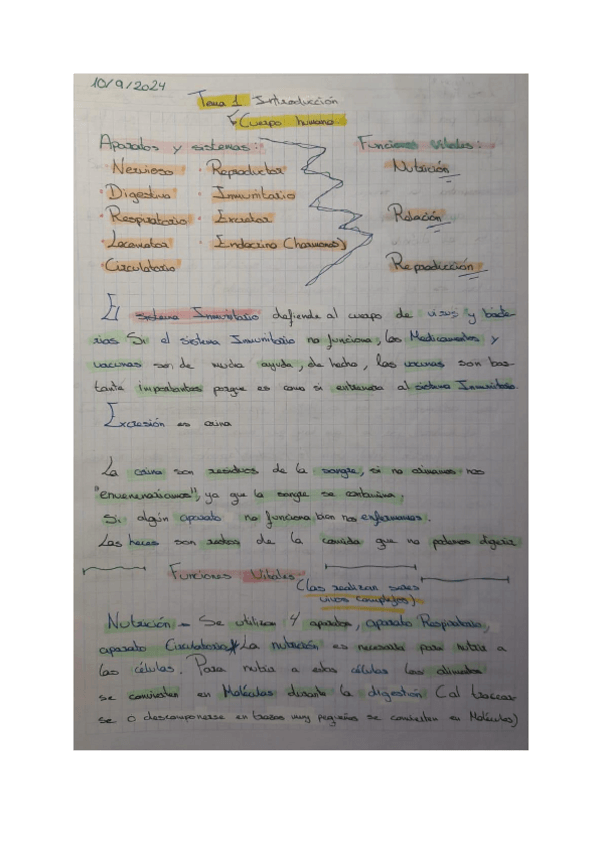 10/9/2024
Tema 1 Introducción
Cuerpo humano
Aparatos y sistemas: Funciones Vitales:
· Nervioso · Reproductor Nutrición
· Digestivo · Inmunitario
· Respiratorio · Excretor Relación
· Locomotor · Endocrino (hormonas)
Circulatorio Reproducción
El sistema Inmunitario defiende al cuerpo de virus y bacte-
rias Si el sistema Inmunitario no funciona, los Medicamentos y
vacunas son de mucha ayuda, de hecho, las vacunas son bas-
tante importantes porque es como si entrenara al sistema Inmunitario
Excresión es orina
La orina son residuos de la sangre, si no orinamos nos
"envenenariamos", ya que la sangre se contamina.
Si algún aparato no funciona bien nos enfermamos.
Las heces son restos de la comida que no podemos digerir
Funciones Vitales
(las realizan seres
vivos complejos)
Nutrición - Se utilizan 4 aparatos, aparato Respiratorio,
aparato Circulatorio * La nutrición es necesaria para nutrir a
las células. Para nutrir a estas células los alimentos
se convierten en Moléculas durante la digestión (al trocear
se o descomponerse en trozos muy pequeños se convierten en Moléculas)